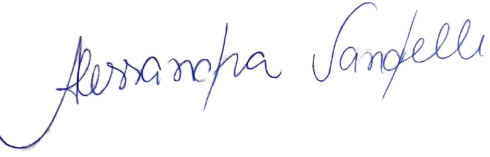 Alessandra Vandelli